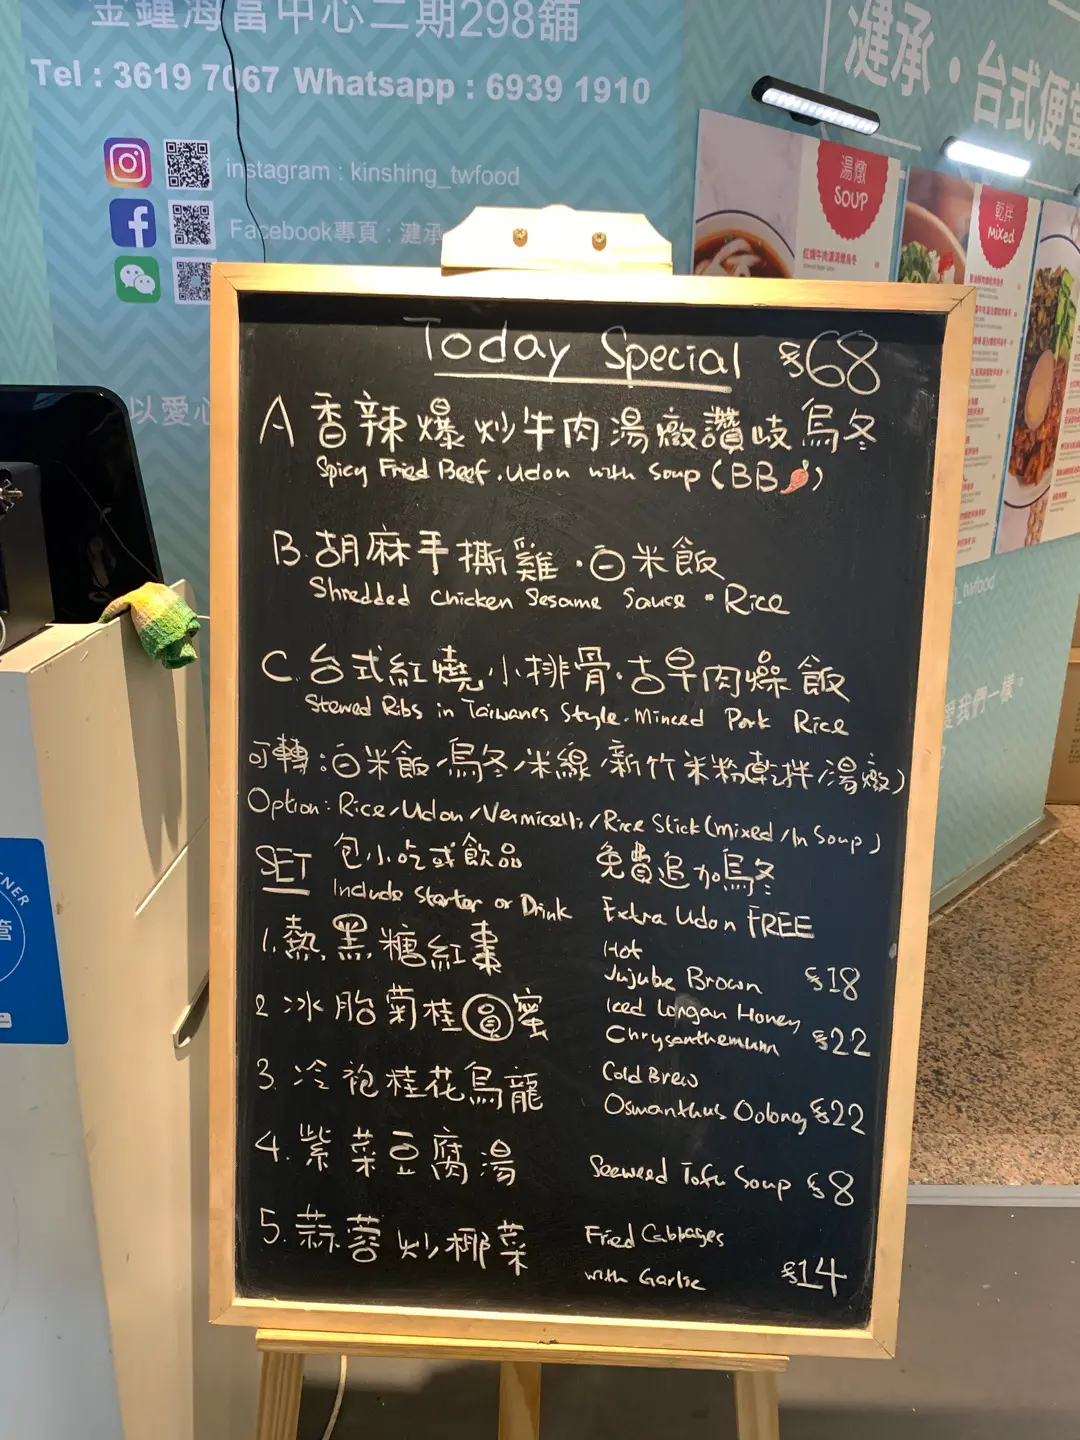 金鐘海富中心二期298舖
Tel : 3619 7067 Whatsapp : 6939 1910
instagram : kinshing_twfood
Facebook專頁 : 漣承
以愛心
漣承・台式便當
湯燉
SOUP
乾拌
Mixed
_twfood
愛我們一樣。
Today Special $68
A 香辣爆炒牛肉湯燉讚岐烏冬
Spicy Fried Beef . Udon with Soup (BB🌶)
B. 胡麻手撕雞・白米飯
Shredded Chicken Sesame Sauce • Rice
C. 台式紅燒小排骨・古早肉燥飯
Stewed Ribs in Taiwanes Style . Minced Pork Rice
可轉：白米飯/烏冬/米線/新竹米粉(乾拌/湯燉)
Option: Rice/Udon/Vermicelli/Rice Stick (mixed/In Soup)
SET 包小吃或飲品 免費追加烏冬
Include Starter or Drink Extra Udon FREE
1. 熱黑糖紅棗 Hot Jujube Brown $18
2 冰胎菊桂圓蜜 Iced Longan Honey Chrysanthemum $22
3. 冷袍桂花烏龍 Cold Brew Osmanthus Oolong $22
4. 紫菜豆腐湯 Seeweed Tofu Soup $8
5. 蒜蓉炒椰菜 Fried Cabbages with Garlic $14